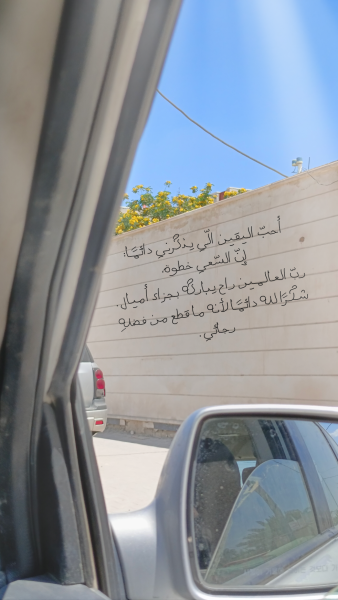 أحبّ اليقين الّي يذكّرني دائمًا:
إنّ السّعي خطوة،
ربّ العالمين راح يباركه بجزاء أميال.
شكرًا لله دائمًا لأنه ما قطع من فضلهِ
رجائي.